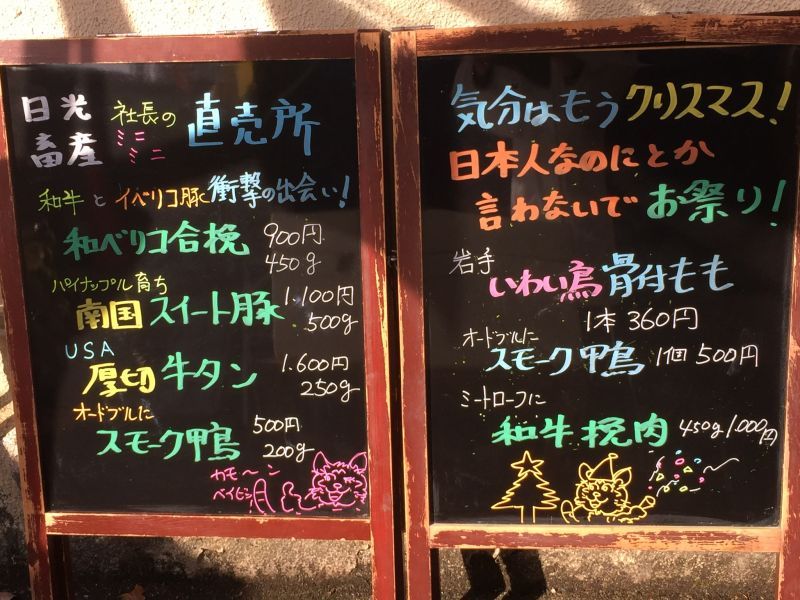 日光畜産
社長の
ミニミニ
直売所
和牛とイベリコ豚衝撃の出会い!
和ベリコ合挽
900円
450g
パイナップル育ち
南国スイート豚
1.100円
500g
USA
厚切牛タン
1.600円
250g
オードブルに
スモーク鴨
500円
200g
カモ〜ン
ベイビー
気分はもうクリスマス!
日本人なのにとか
言わないでお祭り!
岩手
いわい鳥骨付もも
1本360円
オードブルに
スモーク鴨 1個500円
ミートローフに
和牛挽肉 450g1.000円